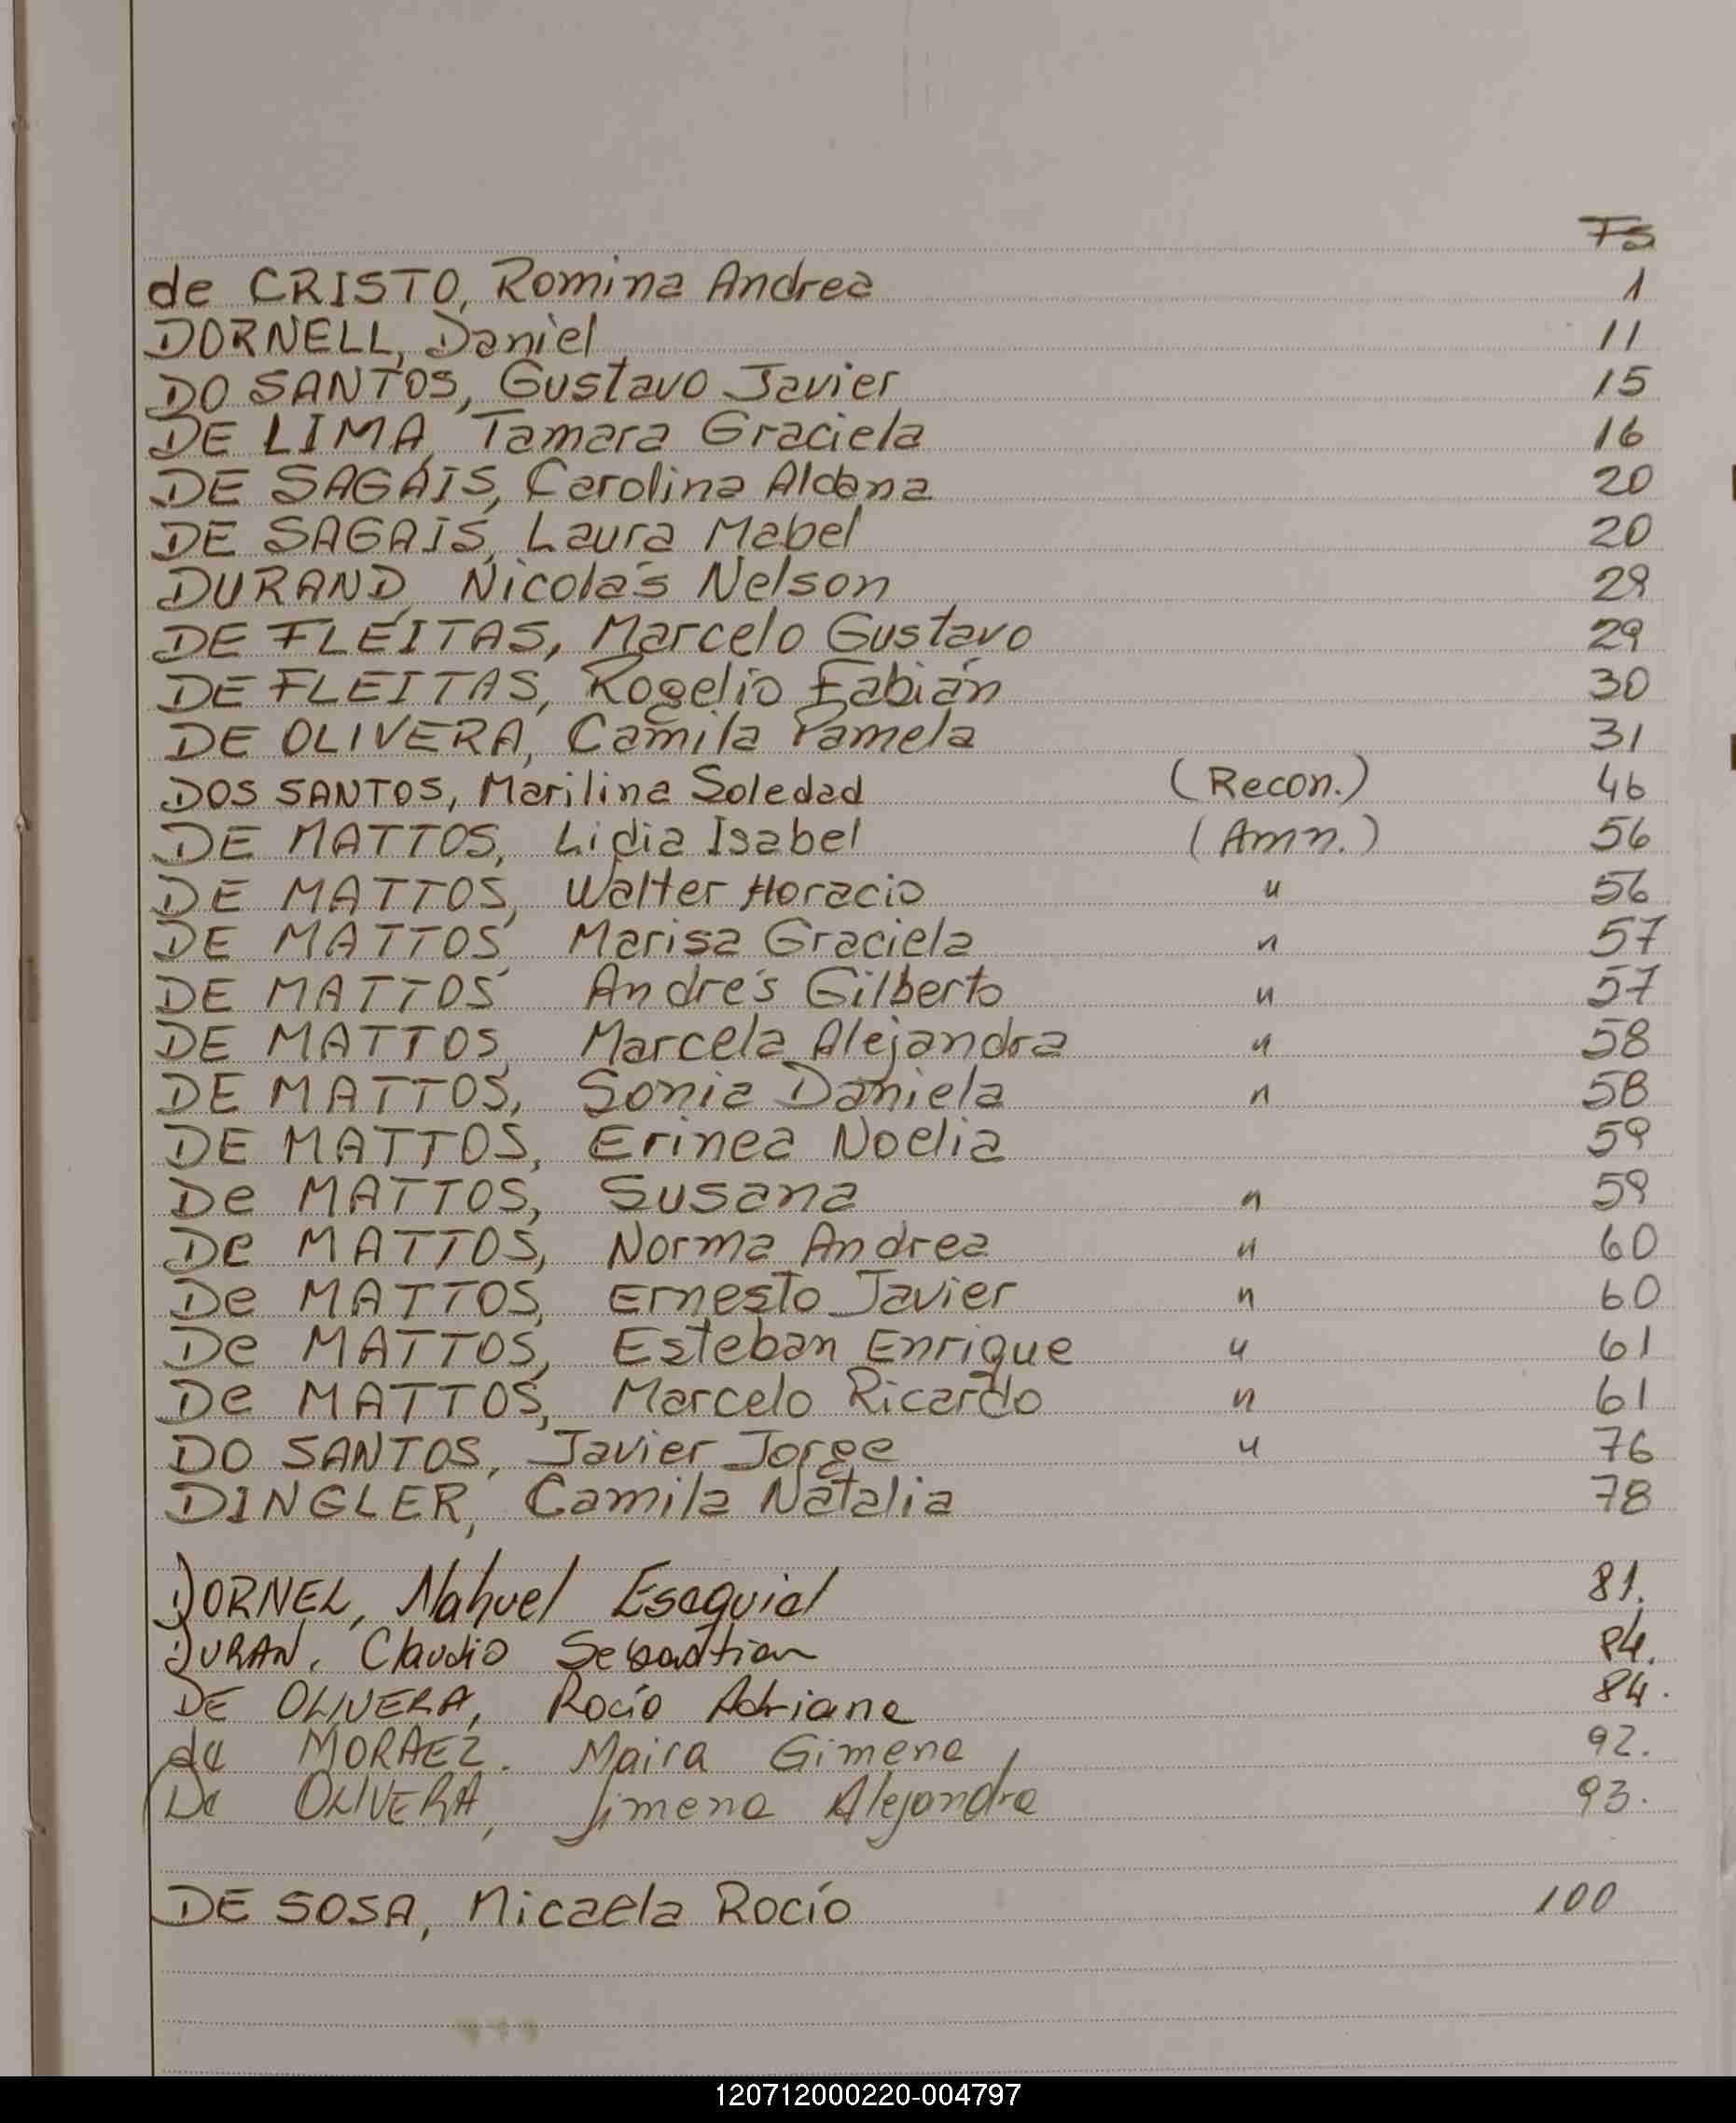 Fs
de CRISTO, Romina Andrea 1
DORNELL, Daniel 11
DO SANTOS, Gustavo Javier 15
DE LIMA, Tamara Graciela 16
DE SAGAIS, Carolina Aldana 20
DE SAGAIS, Laura Mabel 20
DURAND, Nicolás Nelson 29
DE FLEITAS, Marcelo Gustavo 29
DE FLEITAS, Rogelio Fabián 30
DE OLIVERA, Camila Pamela 31
DOS SANTOS, Marilina Soledad (Recon.) 46
DE MATTOS, Lidia Isabel (Amn.) 56
DE MATTOS, Walter Horacio " 56
DE MATTOS, Marisa Graciela " 57
DE MATTOS, Andrés Gilberto " 57
DE MATTOS, Marcela Alejandra " 58
DE MATTOS, Sonia Daniela " 58
DE MATTOS, Erinea Noelia 59
De MATTOS, Susana " 59
De MATTOS, Norma Andrea " 60
De MATTOS, Ernesto Javier " 60
De MATTOS, Esteban Enrique " 61
De MATTOS, Marcelo Ricardo " 61
DO SANTOS, Javier Jorge " 76
DINGLER, Camila Natalia 78
DORNEL, Nahuel Esequiel 81.
DURAN, Claudio Sebastian 84.
DE OLIVERA, Rocío Adriana 84.
de MORAEZ. Maira Gimena 92.
De OLIVERA, Jimena Alejandra 93.
DE SOSA, Micaela Rocío 100
120712000220-004797